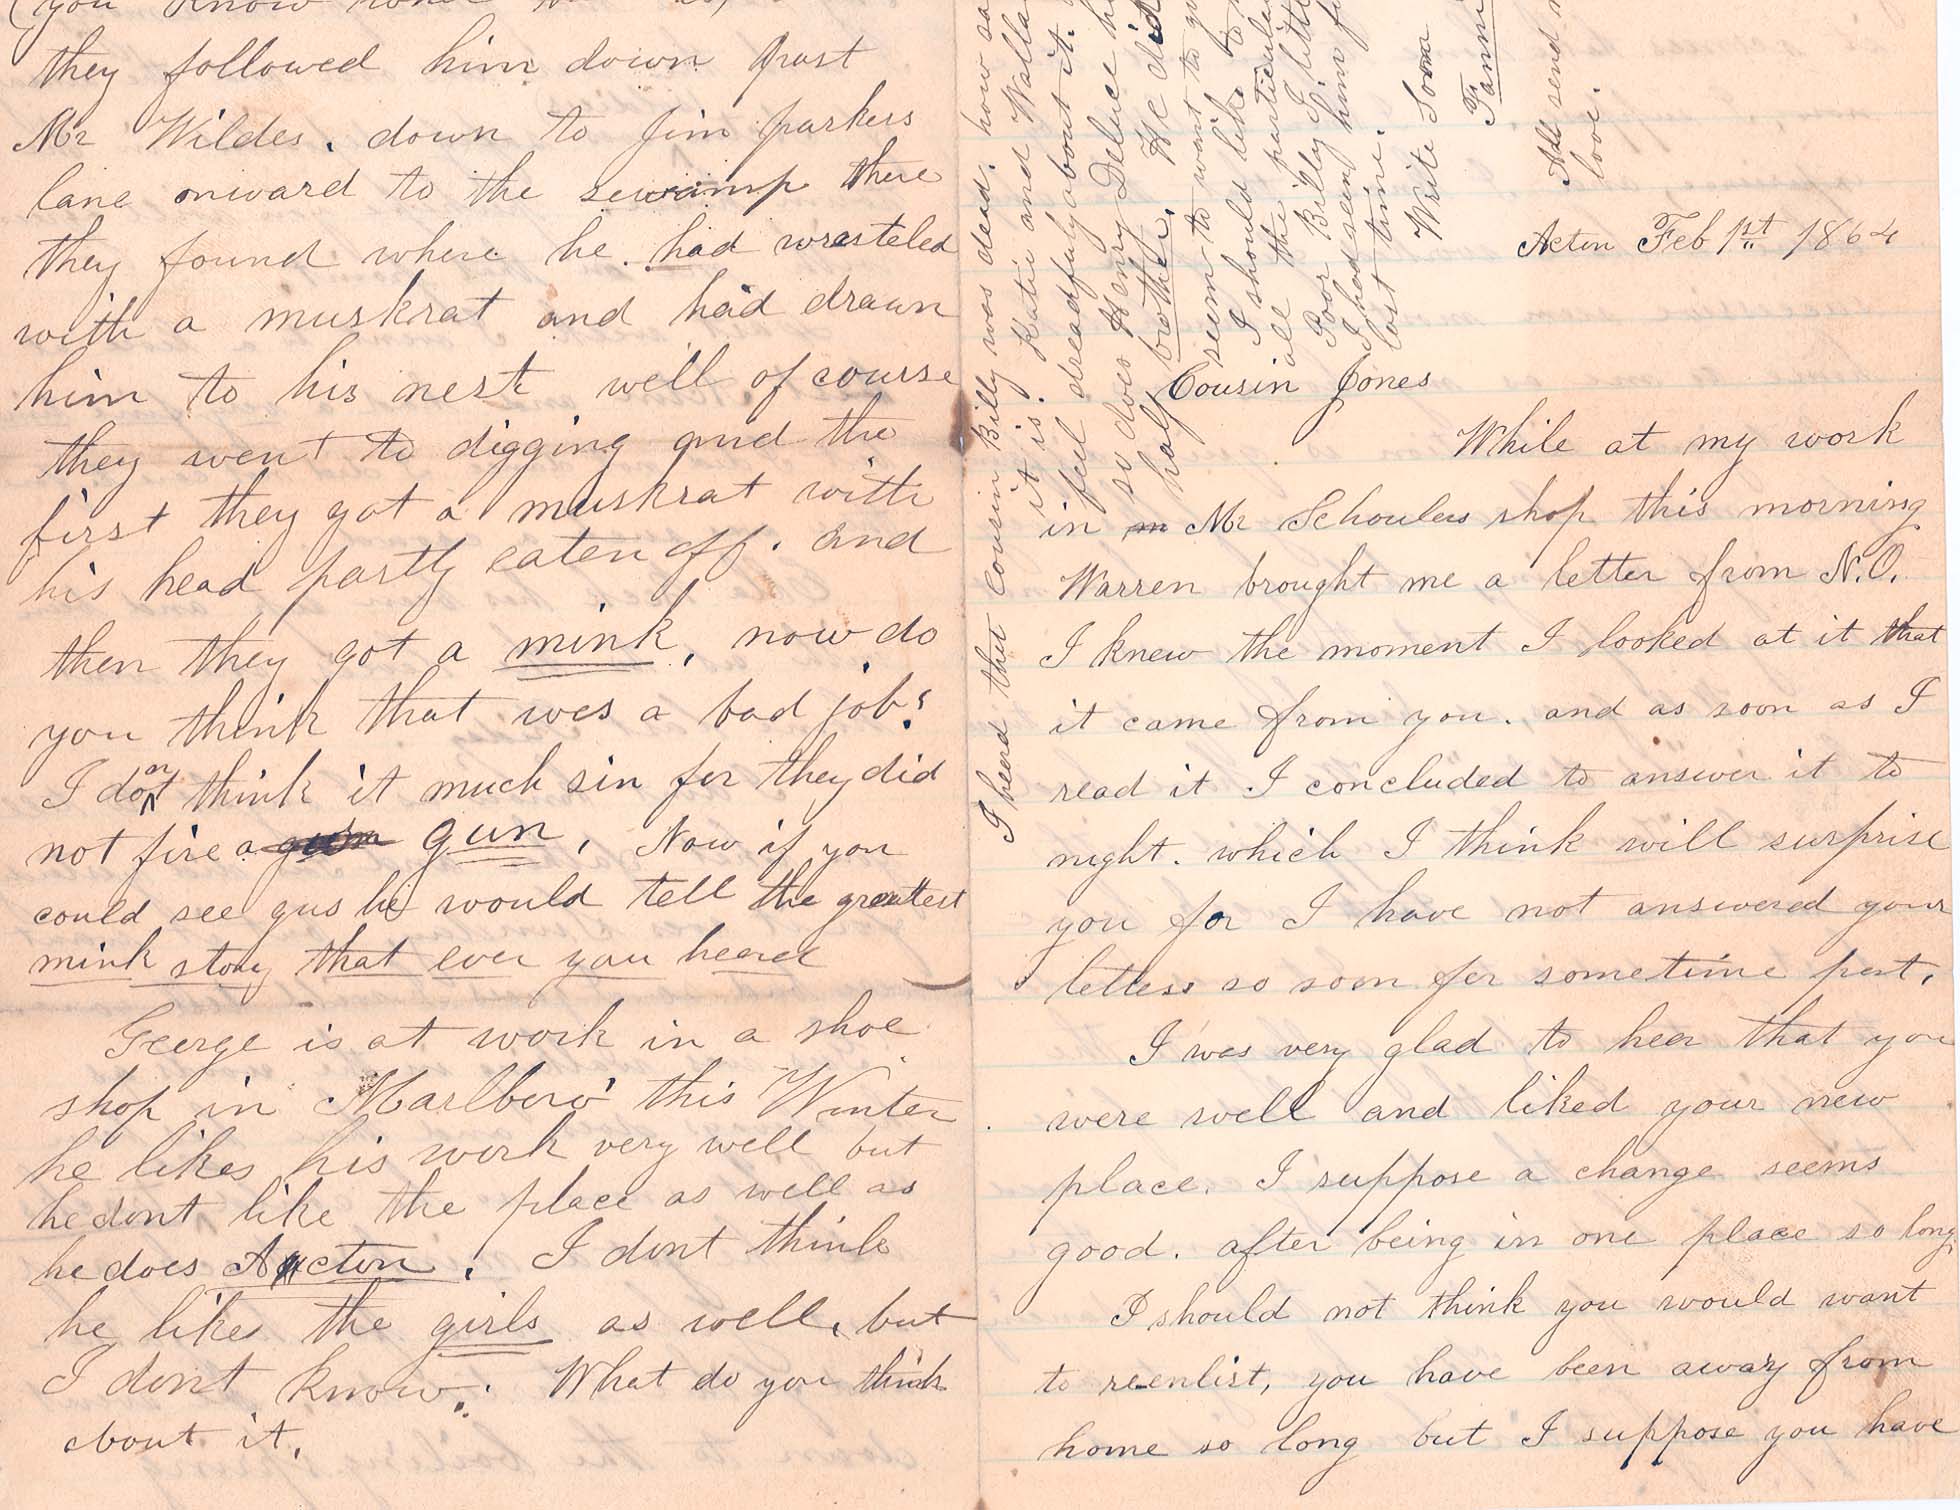 Acton Feb 1st 1864
Cousin Jones
While at my work
in m Mr Schoulers shop this morning
Warren brought me a letter from N.O.
I knew the moment I looked at it that
it came from you. and as soon as I
read it I concluded to answer it to
night. which I think will surprise
you for I have not answered your
letters so soon for sometime past.
I was very glad to hear that you
were well and liked your new
place. I suppose a change seems
good. after being in one place so long
I should not think you would want
to reenlist, you have been away from
home so long but I suppose you have
(you know what
they followed him down past
Mr Wildes. down to Jim parkers
lane onward to the swamp there
they found where he. had wrasteled
with a muskrat and had drawn
him to his nest well of course
they went to digging and the
first they got a muskrat with
his head partly eaten off. and
then they got a mink, now do
you think that was a bad job?
I do not think it much sin for they did
not fire a gun gun, Now if you
could see gus he would tell the greattest
mink story that ever you heard
George is at work in a shoe
shop in Marlboro this Winter
he likes his work very well but
he dont like the place as well as
he does Acton. I dont think
he likes the girls as well, but
I dont know. What do you think
about it.
I heard that Cousin Billy was dead. how sa
it is. Katie and Walla
feel dreadfuly about it.
so does Henry Deluce h
half brother. He did
seem to want to
I should like to
all the particula
Poor Billy I
I had seen him
last time.
Write Soon
Fanni
All send
love.